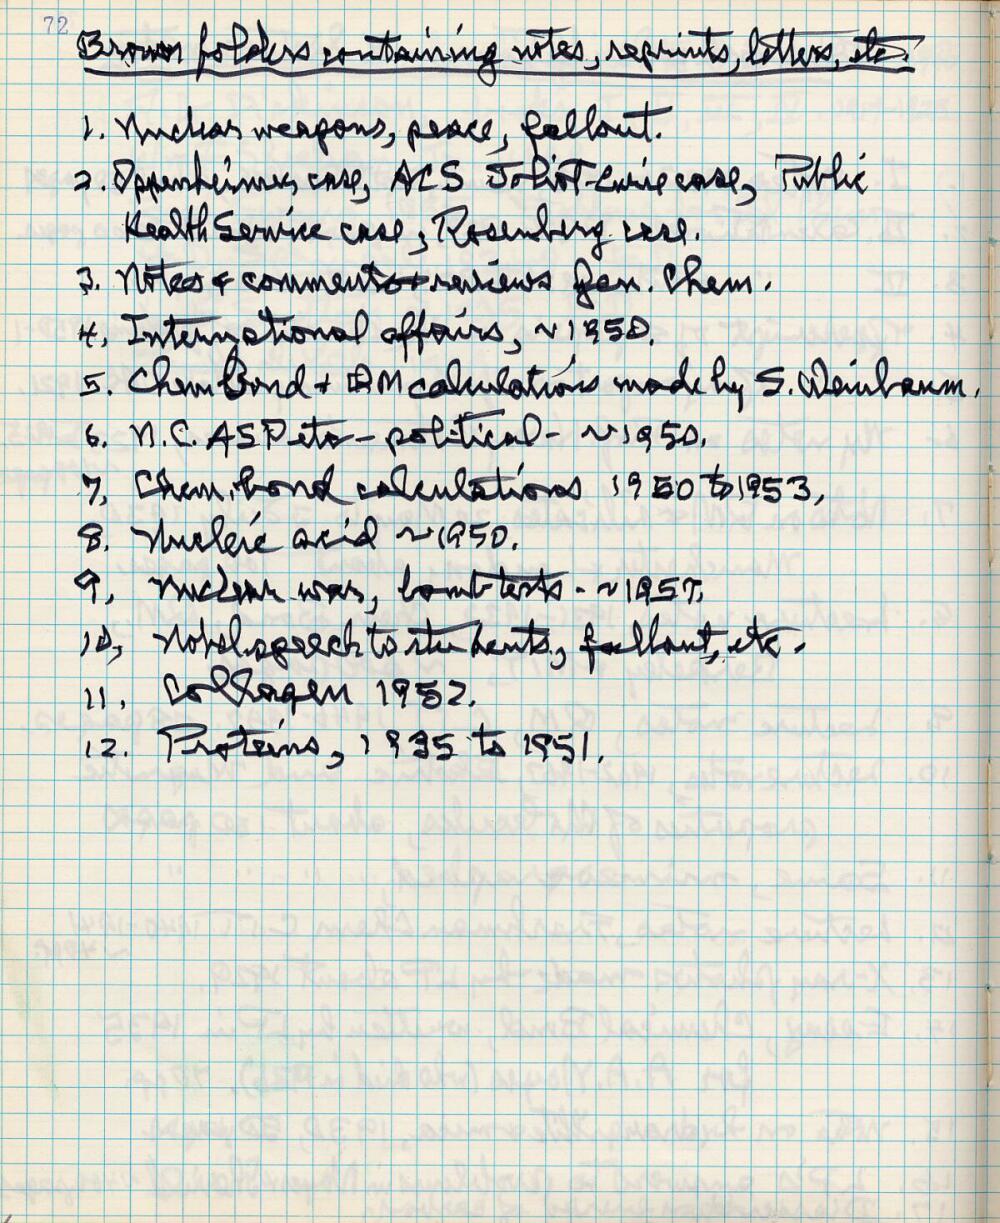 72
Brown folders containing notes, reprints, letters, etc.
1. Nuclear weapons, peace, fallout.
2. Oppenheimer case, ACS Joliot-Curie case, Public
Health Service case, Rosenberg case.
3. Notes & comments & reviews Gen. Chem.
4. International affairs, ~1950.
5. Chem Bond + QM calculations made by S. Weinbaum.
6. N.C. ASP etc - political - ~1950.
7. Chem. bond calculations 1950 to 1953,
8. Nucleic acid ~1950.
9, Nuclear war, bomb tests - ~1957.
10, Nobel speech to students, fallout, etc.
11, Collagen 1952.
12. Proteins, 1935 to 1951.